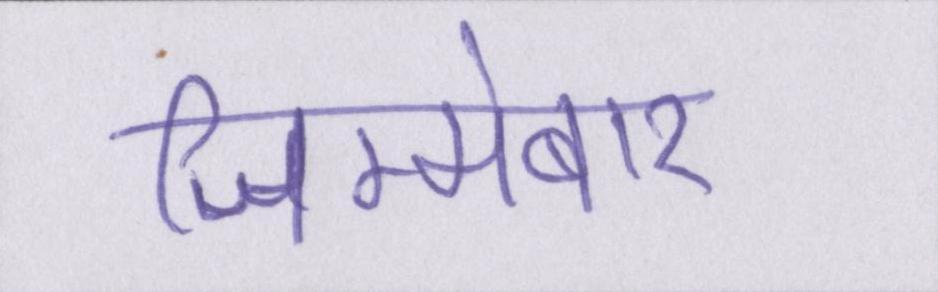 जिम्मेबार